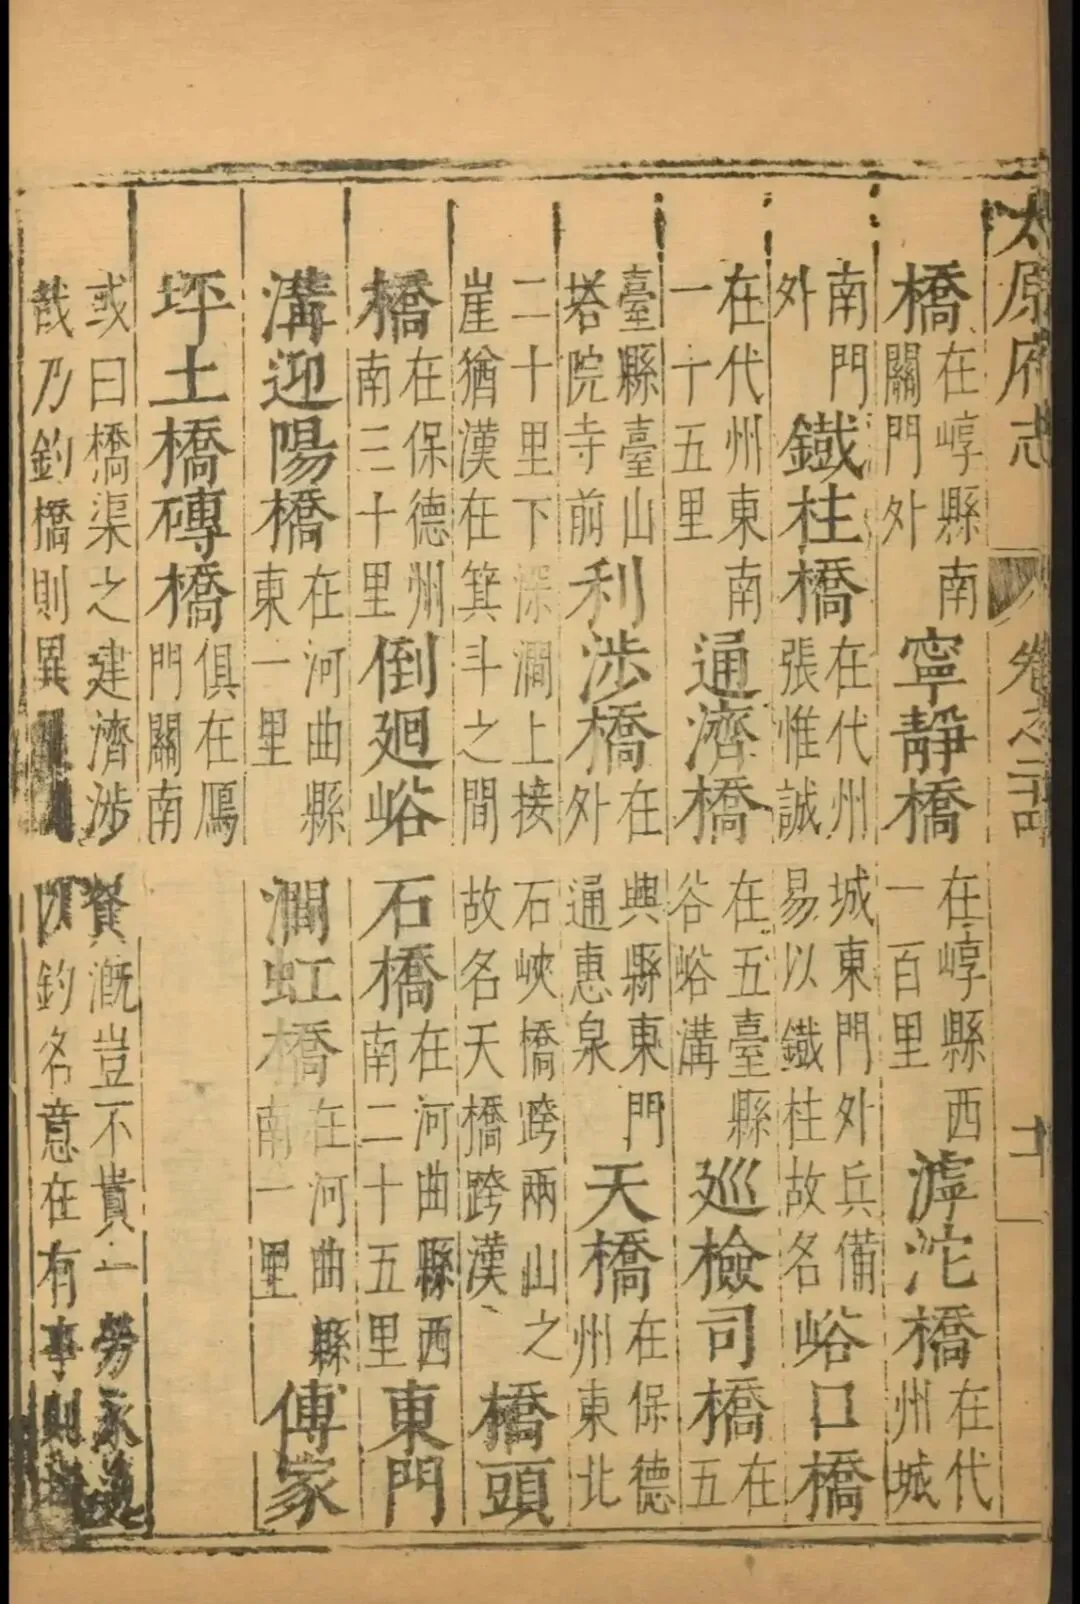 太原府志 卷之二十四
橋在崞縣南關門外寧靜橋在崞縣西一百里滹沱橋在代州城
南門外鐵柱橋在代州城東門外兵備張惟誠易以鐵柱故名峪口橋
在代州東南一十五里通濟橋在五臺縣谷峪溝巡檢司橋在五
臺縣臺山塔院寺前利涉橋在興縣東門外通惠泉天橋在保德州東北
二十里下深澗上接石峽橋跨兩山之崖猶漢在箕斗之間故名天橋跨漢橋頭
橋在保德州南三十里倒廻峪石橋在河曲縣西南二十五里東門
溝迎陽橋在河曲縣東一里澗虹橋在河曲縣南一里傅家
坪土橋磚橋俱在鴈門關南
或曰橋渠之建濟涉漑豈不貴一勞永
哉乃釣橋則異釣名意在有事則